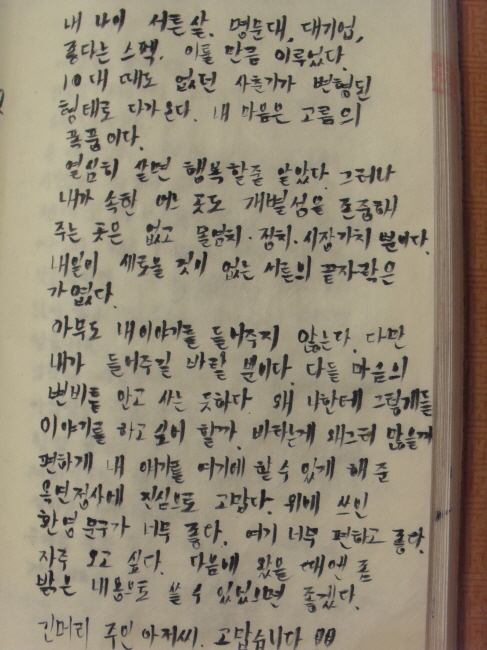 내 나이 서른살. 명문대, 대기업,
좋다는 스펙. 이룰 만큼 이루었다.
10대 때도 없던 사춘기가 변형된
형태로 다가온다. 내 마음은 고름의
폭풍이다.
열심히 살면 행복할줄 알았다. 그러나
내가 속한 어느 곳도 개별성을 존중해
주는 곳은 없고 몰염치. 정치. 시장가치 뿐이다.
내일이 새로울 것이 없는 서른의 끝자락은
가엾다.
아무도 내이야기를 들어주지 않는다. 다만
내가 들어주길 바랄 뿐이다. 다들 마음의
변비를 안고 사는 듯하다. 왜 나한테 그렇게들
이야기를 하고싶어 할까. 바라는게 왜그리 많을까
편하게 내 얘기를 여기에 할 수 있게 해 준
옥면정사에 진심으로 고맙다. 위에 쓰인
환영 문구가 너무 좋다. 여기 너무 편하고 좋다.
자주 오고 싶다. 다음에 왔을 때엔 좀
밝은 내용으로 쓸 수 있었으면 좋겠다.
긴머리 주인 아저씨. 고맙습니다